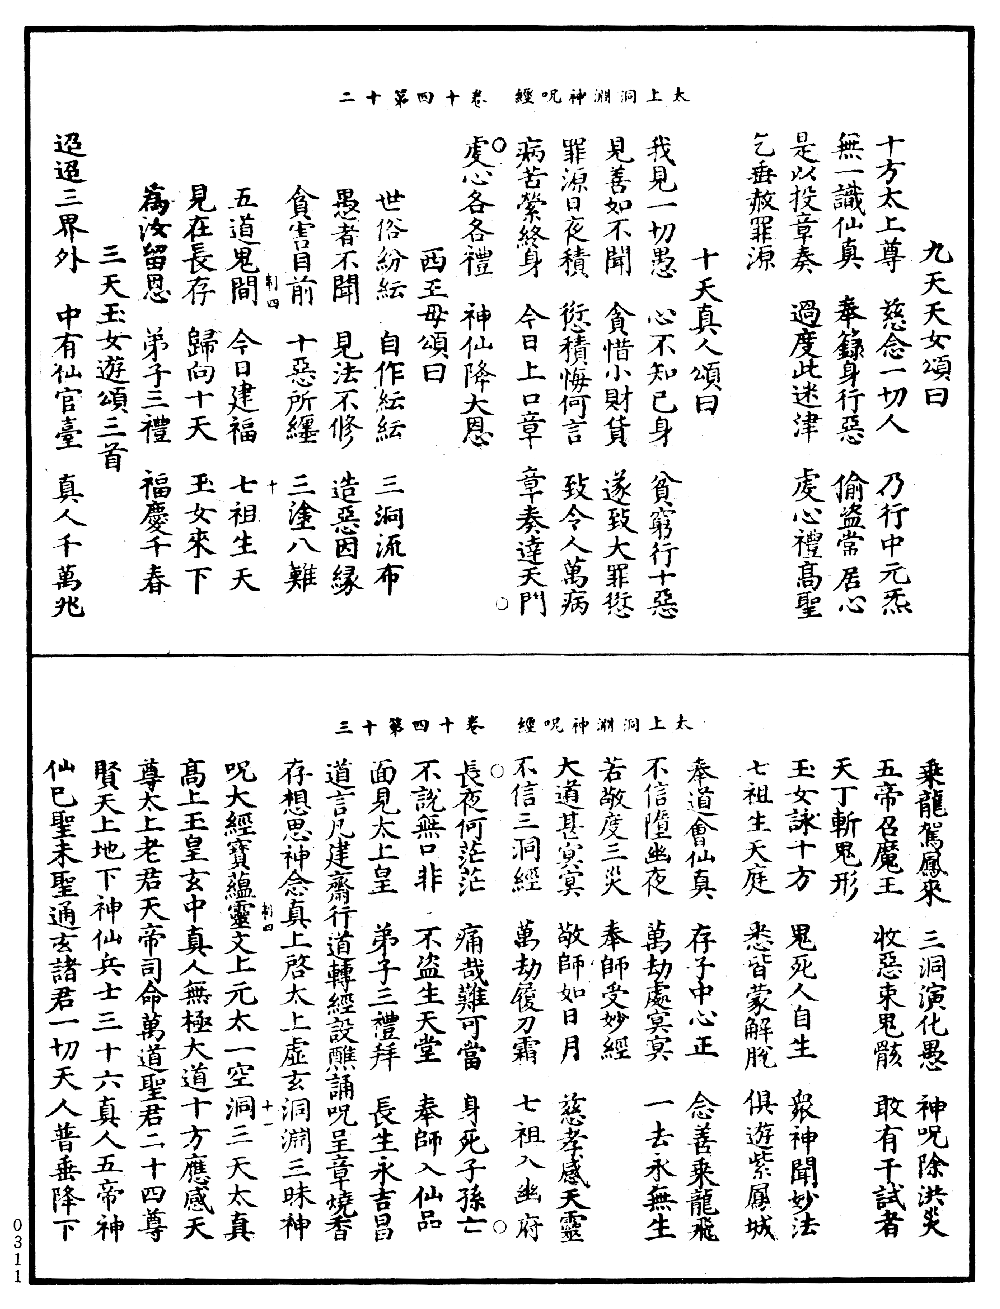 太上洞淵神呪經　卷十四第十二
九天天女頌曰
十方太上尊　慈念一切人　乃行中元炁
無一識仙真　奉籙身行惡　偷盜常居心
是以投章奏　過度此迷津　虔心禮高聖
乞垂赦罪源
十天真人頌曰
我見一切愚　心不知已身　貧窮行十惡
見善如不聞　貪惜小財貨　遂致大罪愆
罪源日夜積　愆積悔何言　致令人萬病
病苦縈終身　今日上口章　章奏達天門
虔心各各禮　神仙降大恩
西王母頌曰
世俗紛紜　自作紜紜　三洞流布
愚者不聞　見法不修　造惡因緣
貪害目前　十惡所纏　三塗八難
制四　十
五道鬼間　今日建福　七祖生天
見在長存　歸向十天　玉女來下
為汝留恩　弟子三禮　福慶千春
三天玉女遊頌三首
迢迢三界外　中有仙官臺　真人千萬兆
太上洞淵神呪經　卷十四第十三
乘龍駕鳳來　三洞演化愚　神呪除洪災
五帝召魔王　收惡束鬼骸　敢有干試者
天丁斬鬼形
玉女詠十方　鬼死人自生　眾神聞妙法
七祖生天庭　悉皆蒙解脫　俱遊紫鳳城
奉道會仙真　存子中心正　念善乘龍飛
不信墮幽夜　萬劫處冥冥　一去永無生
若敬度三災　奉師受妙經
大道甚冥冥　敬師如日月　慈孝感天靈
不信三洞經　萬劫履刀霜　七祖入幽府
長夜何茫茫　痛哉難可當　身死子孫亡
不說無口非　不盜生天堂　奉師入仙品
面見太上皇　弟子三禮拜　長生永吉昌
道言凡建齋行道轉經設醮誦呪呈章燒香
存想思神念真上啓太上虛玄洞淵三昧神
制四　十一
呪大經寶蘊靈文上元太一空洞三天太真
高上玉皇玄中真人無極大道十方應感天
尊太上老君天帝司命萬道聖君二十四尊
賢天上地下神仙兵士三十六真人五帝神
仙巳聖未聖通玄諸君一切天人普垂降下
0311